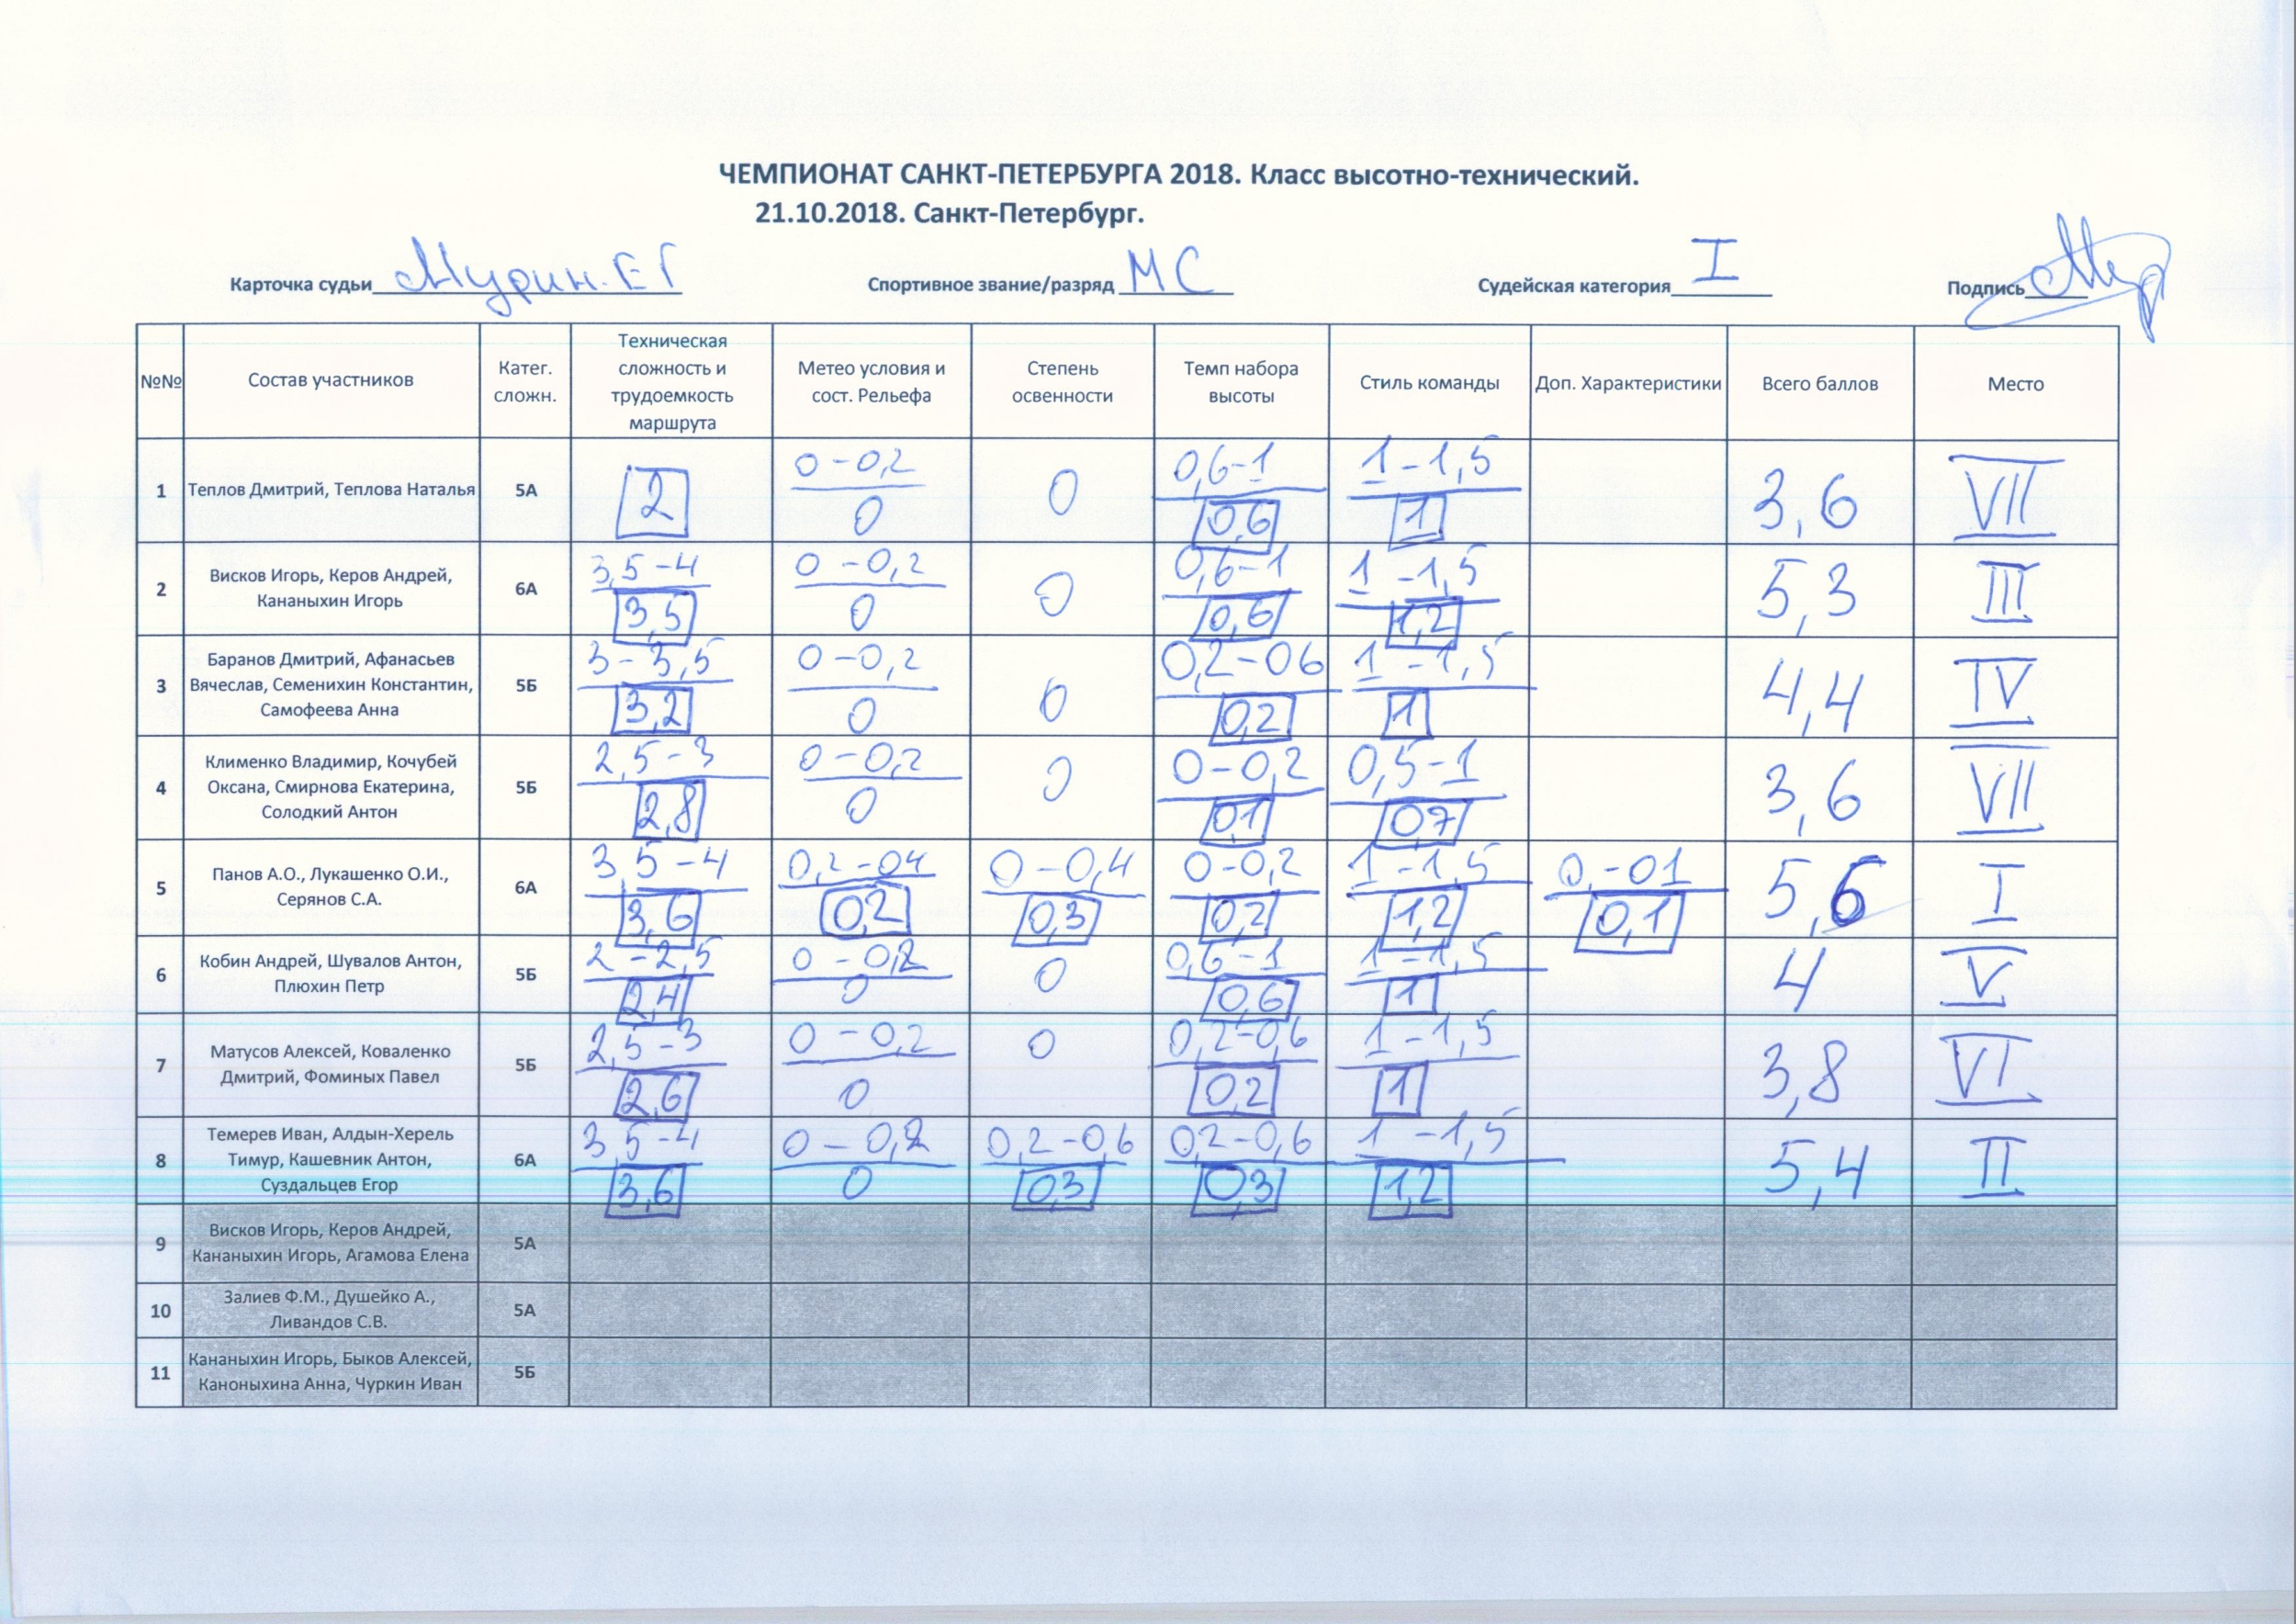 ЧЕМПИОНАТ САНКТ-ПЕТЕРБУРГА 2018. Класс высотно-технический.
21.10.2018. Санкт-Петербург.
Карточка судьи Мурин. ЕГ Спортивное звание/разряд МС Судейская категория I Подпись
№№ Состав участников Катег. сложн. Техническая сложность и трудоемкость маршрута Метео условия и сост. Рельефа Степень освенности Темп набора высоты Стиль команды Доп. Характеристики Всего баллов Место
1 Теплов Дмитрий, Теплова Наталья 5А 2 0-0,2 0 0 0,6-1 0,6 1-1,5 1 3,6 VII
2 Висков Игорь, Керов Андрей, Кананыхин Игорь 6А 3,5-4 3,5 0-0,2 0 0 0,6-1 0,6 1-1,5 1,2 5,3 III
3 Баранов Дмитрий, Афанасьев Вячеслав, Семенихин Константин, Самофеева Анна 5Б 3-3,5 3,2 0-0,2 0 0 0,2-06 0,2 1-1,5 1 4,4 IV
4 Клименко Владимир, Кочубей Оксана, Смирнова Екатерина, Солодкий Антон 5Б 2,5-3 2,8 0-0,2 0 0 0-0,2 0,1 0,5-1 0,7 3,6 VII
5 Панов А.О., Лукашенко О.И., Серянов С.А. 6А 3,5-4 3,6 0,2-04 0,2 0-0,4 0,3 0-0,2 0,2 1-1,5 1,2 0,-01 0,1 5,6 I
6 Кобин Андрей, Шувалов Антон, Плюхин Петр 5Б 2-2,5 2,4 0-0,2 0 0 0,6-1 0,6 1-1,5 1 4 V
7 Матусов Алексей, Коваленко Дмитрий, Фоминых Павел 5Б 2,5-3 2,6 0-0,2 0 0 0,2-0,6 0,2 1-1,5 1 3,8 VI
8 Темерев Иван, Алдын-Херель Тимур, Кашевник Антон, Суздальцев Егор 6А 3,5-4 3,6 0-0,2 0 0,2-0,6 0,3 0,2-0,6 0,3 1-1,5 1,2 5,4 II
9 Висков Игорь, Керов Андрей, Кананыхин Игорь, Агамова Елена 5А
10 Залиев Ф.М., Душейко А., Ливандов С.В. 5А
11 Кананыхин Игорь, Быков Алексей, Каноныхина Анна, Чуркин Иван 5Б